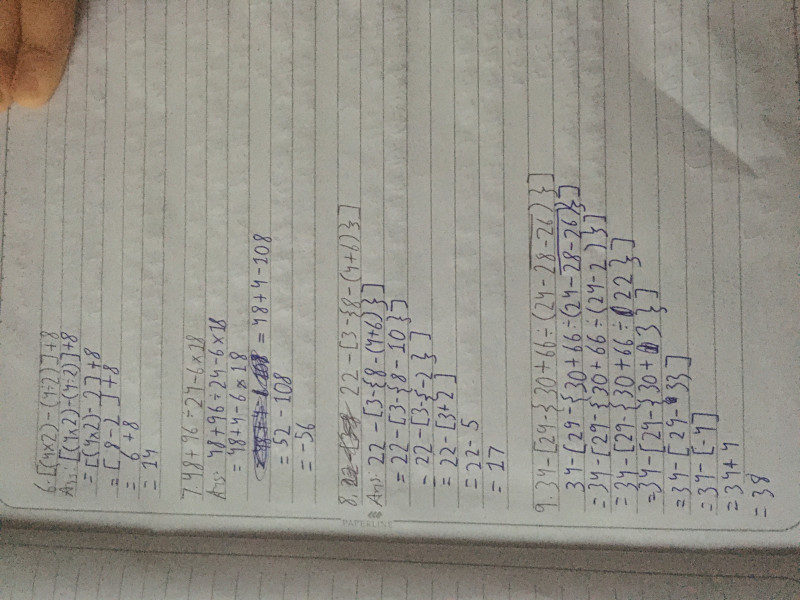 6. [(4×2) - (4÷2)] + 8
Ans: [(4×2) - (4÷2)] + 8
= [(4×2) - 2] + 8
= [8 - 2] + 8
= 6 + 8
= 14
7. 48 + 96 ÷ 24 - 6 × 18
Ans: 48 + 96 ÷ 24 - 6 × 18
= 48 + 4 - 6 × 18
= 48 + 4 - 108
= 52 - 108
= -56
8. 22 - [3 - {8 - (4+6)}]
Ans: 22 - [3 - {8 - (4+6)}]
= 22 - [3 - {8 - 10}]
= 22 - [3 - {-2}]
= 22 - [3+2]
= 22 - 5
= 17
PAPERLINE
9. 34 - [29 - {30 + 66 ÷ (24 - 28 - 26)}]
34 - [29 - {30 + 66 ÷ (24 - 28 - 26)}]
= 34 - [29 - {30 + 66 ÷ (24 - 2)}]
= 34 - [29 - {30 + 66 ÷ 22}]
= 34 - [29 - {30 + 3}]
= 34 - [29 - 33]
= 34 - [-4]
= 34 + 4
= 38